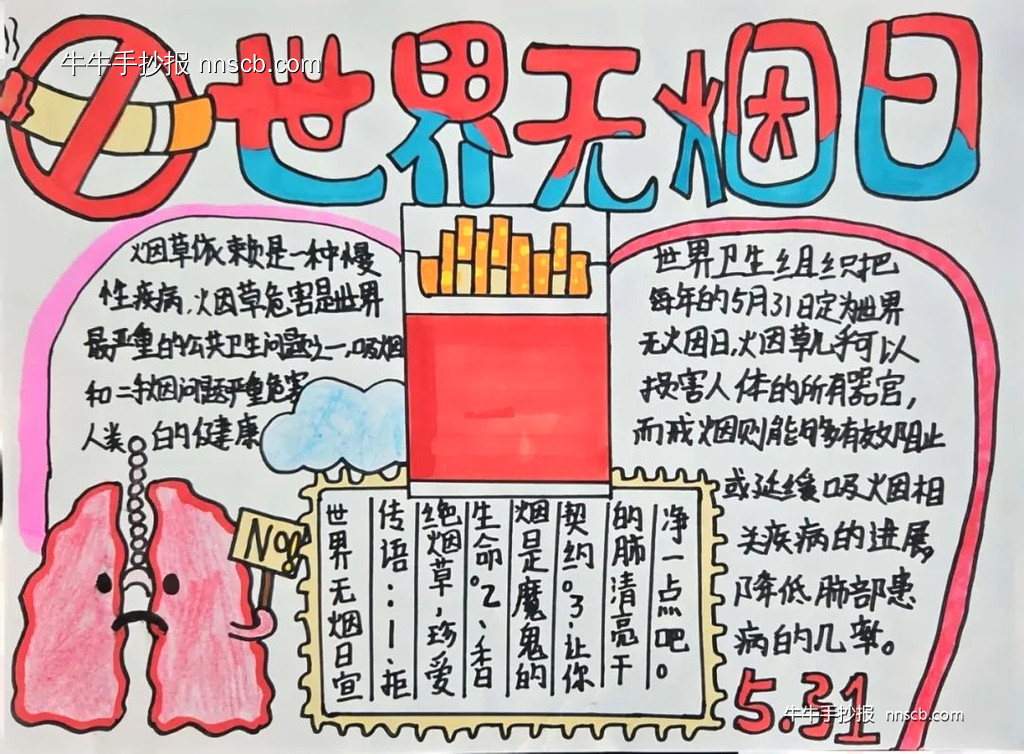 牛牛手抄报 nnscb.com
世界无烟日
烟草依赖是一种慢
性疾病,烟草危害是世界
最严重的公共卫生问题之一,吸烟
和二手烟问题严重危害
人类的健康
世界卫生组织把
每年的5月31日定为世界
无烟日,烟草几乎可以
损害人体的所有器官,
而戒烟则能够有效阻止
或延缓吸烟相
关疾病的进展,
降低肺部患
病的几率。
No!!
世界无烟日宣
传语:1.拒
绝烟草,珍爱
生命。2、香
烟是魔鬼的
契约。3、让你
的肺清亮干
净一点吧。
5.31
牛牛手抄报 nnscb.com